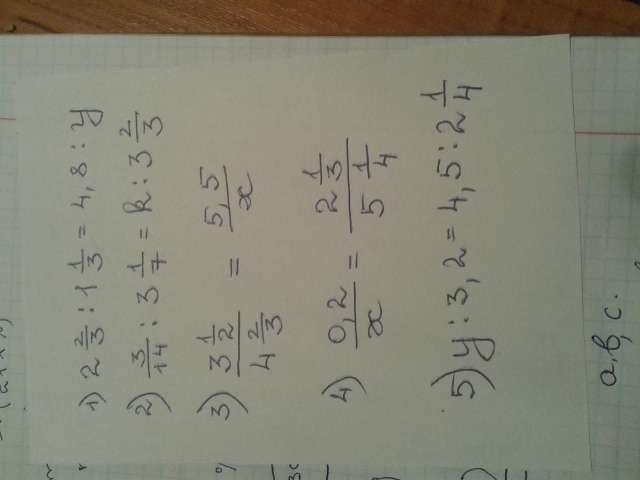 1) 2 2/3 : 1 1/3 = 4,8 : y
2) 3/14 : 3 1/7 = k : 3 2/3
3) 3 1/2 / 4 2/3 = 5,5 / x
4) 0,2 / x = 2 1/3 / 5 1/4
5) y : 3,2 = 4,5 : 2 1/4
а,в,с.